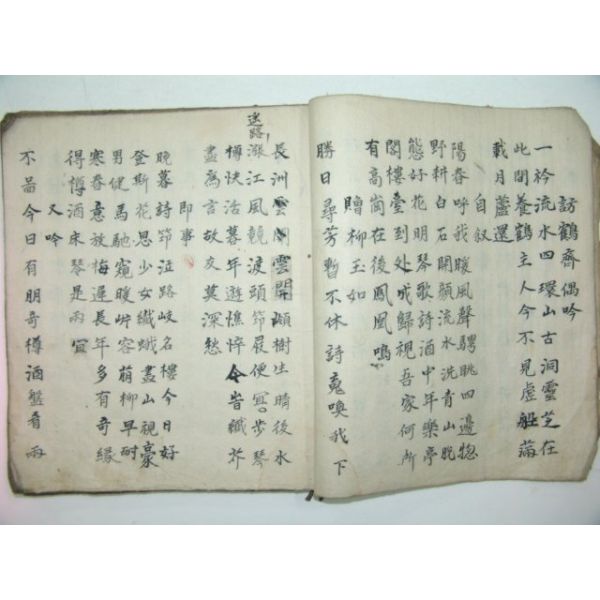 訪鶴齊偶吟
一衿流水四環山古洞靈芝在
此閒養鶴主人今不見虛船滿
載月蘆還
自叙
陽春呼我暖風聲騁眺四邊物
野耕白石開顏流水洗青山脫
態好花明琴歌詩酒中年樂亭
閣樓臺到处成歸視吾家何所
有高崗在後鳳凰鳴
贈柳玉如
勝日尋芳暫不休詩
喚我下
長洲雲
雲開
樹生晴後水
迷路
漲江風競渡頭節屐便宜步琴
樽快活暮年遊憔悴今昔纖芥
盡爲言故友莫深愁
即事
晚暮詩節
路岐名樓今日好
登斯花思少女纖蛾盡山視豪
男健馬馳
暖
容萌柳早耐
寒春意放梅遲長年多有奇緣
得樽酒床琴是雨宜
又吟
不啚今日有朋奇樽酒盤肴兩